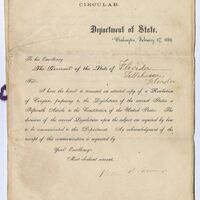 CIRCULAR.
Department of State,
Washington, February 27, 1869.
To his Excellency
The Governor of the State of Florida
Tallahassee
Florida
Sir:
I have the honor to transmit an attested copy of a Resolution
of Congress, proposing to the Legislatures of the several States a
Fifteenth Article to the Constitution of the United States. The
decisions of the several Legislatures upon the subject are required by law
to be communicated to this Department. An acknowledgment of the
receipt of this communication is requested by
Your Excellency's
Most obedient servant,